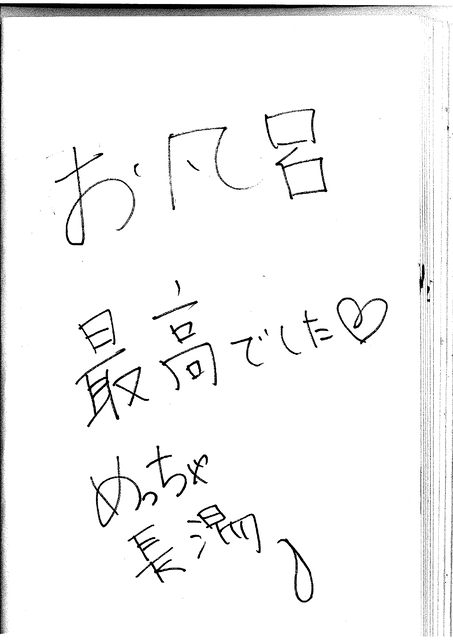 お風呂
最高でした♡
めっちゃ
長湯